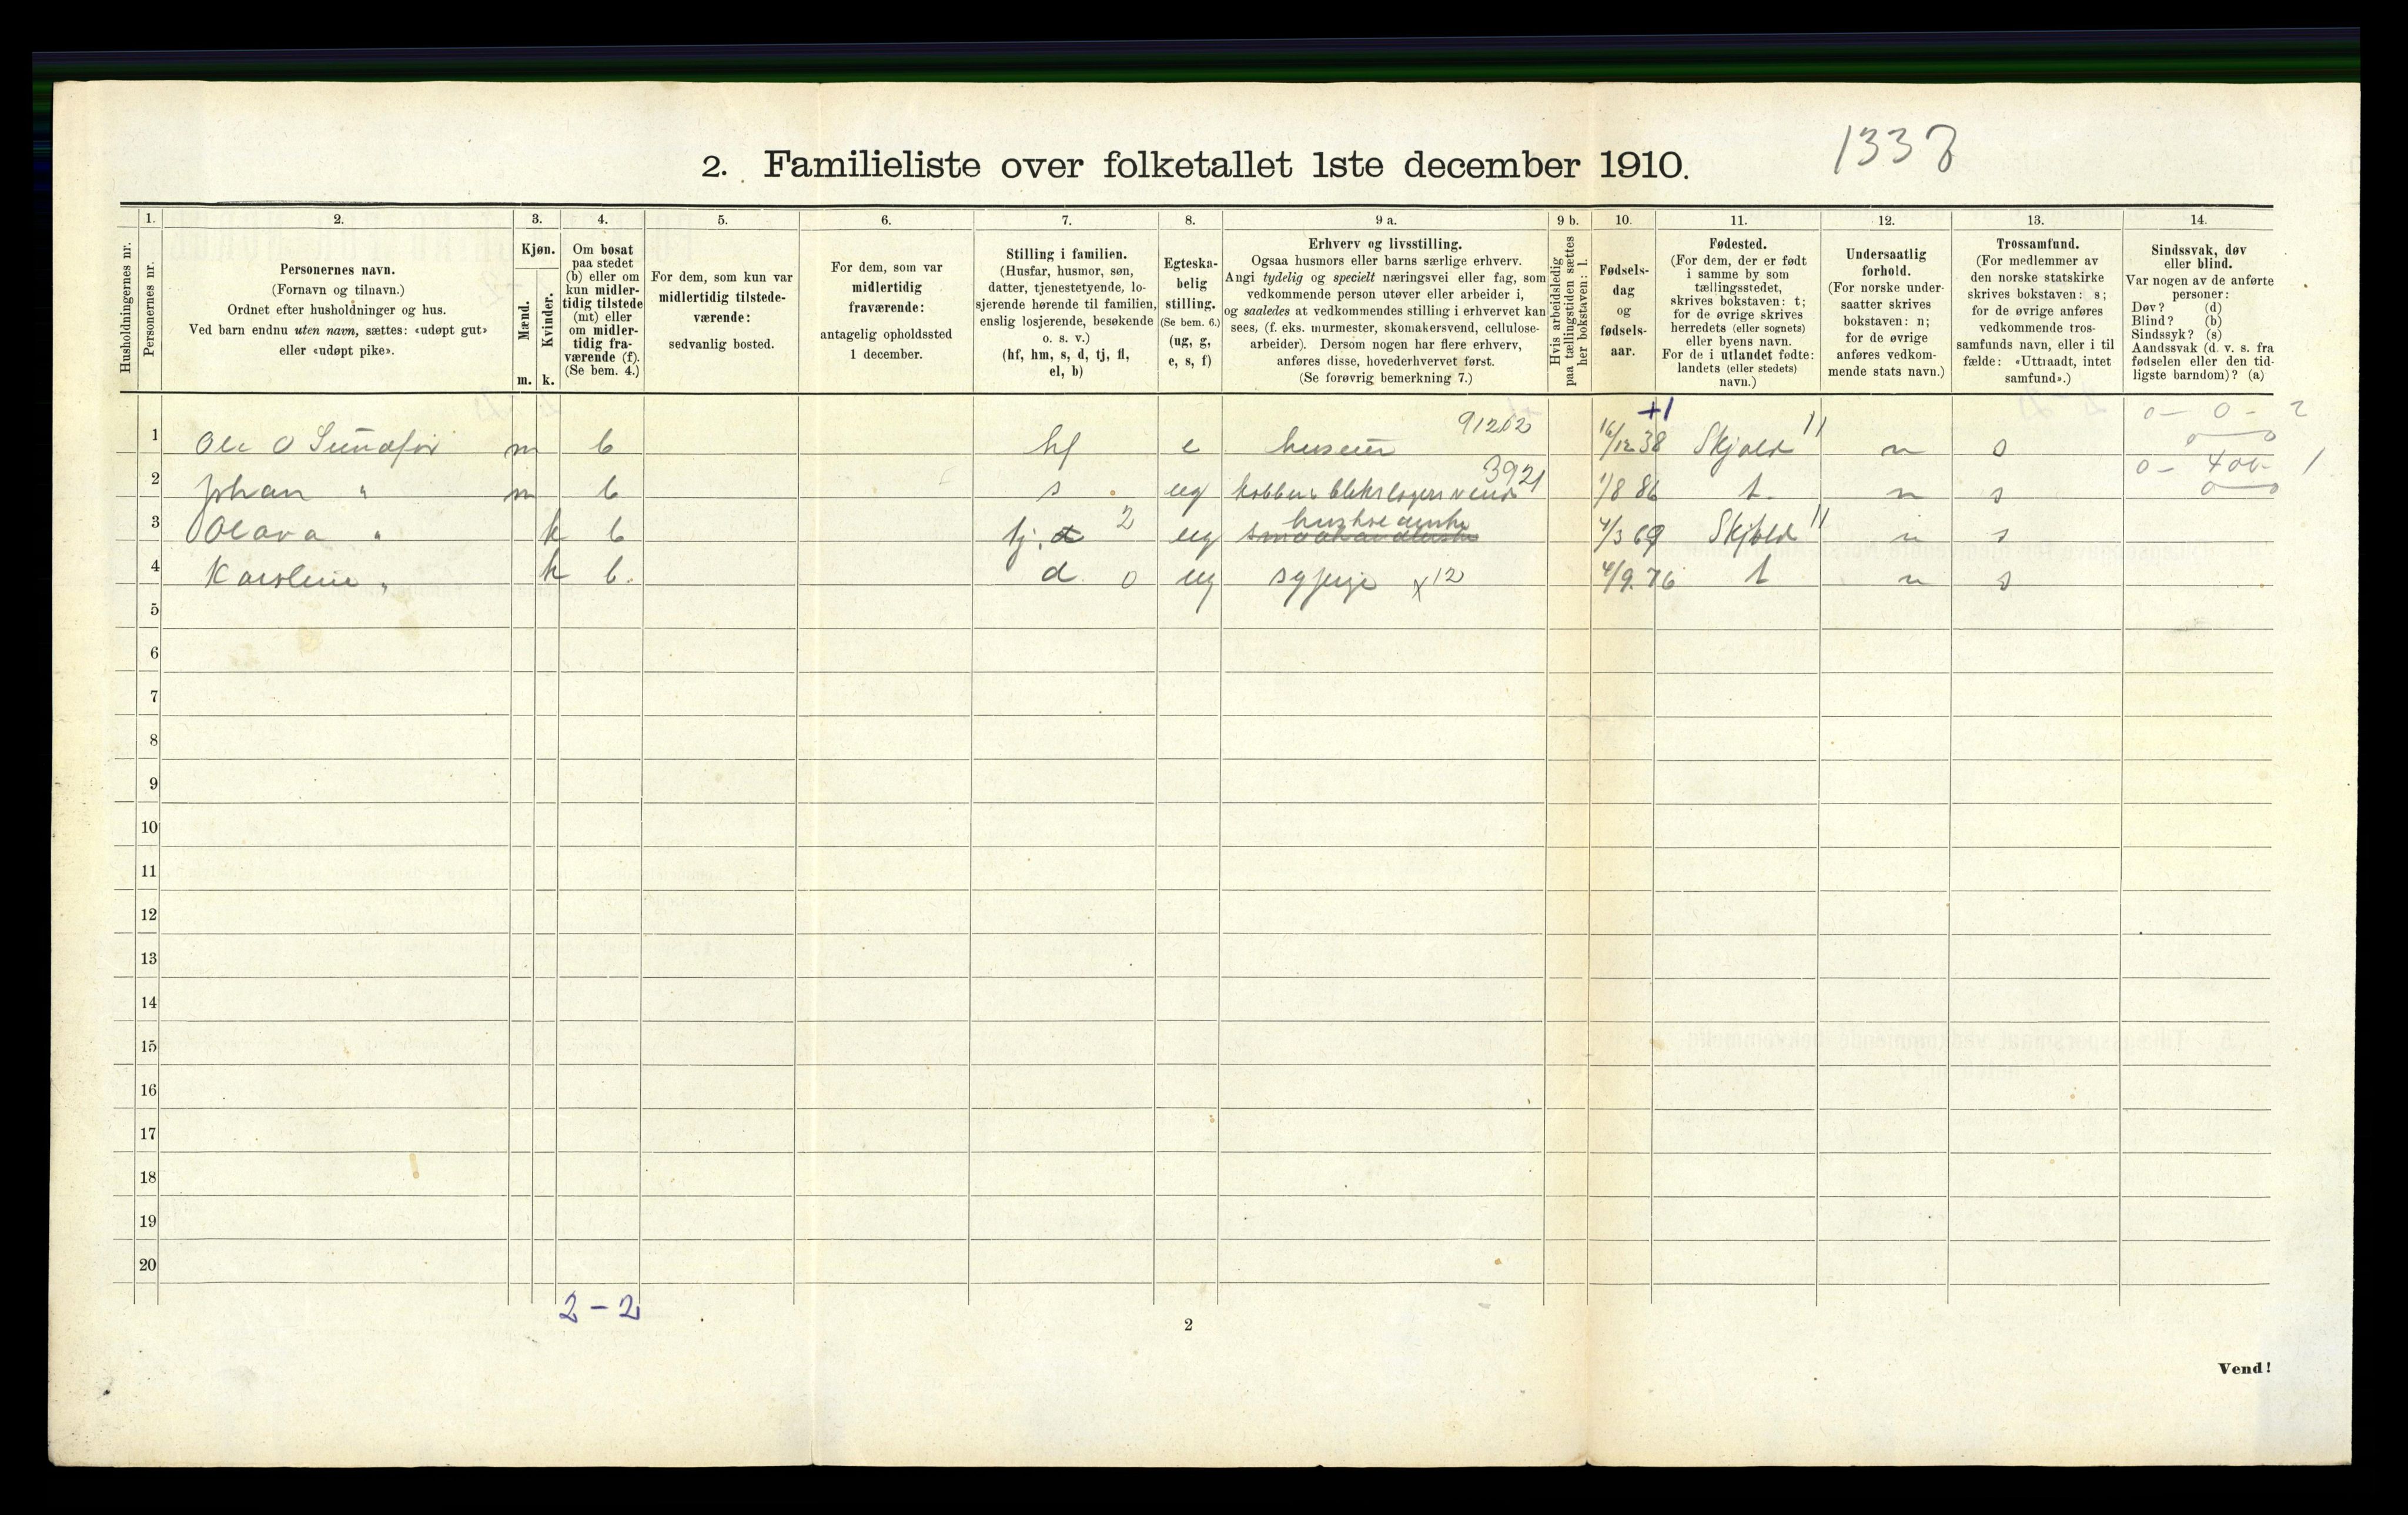 1338
2. Familieliste over folketallet 1ste december 1910.
Husholdningernes nr.
1. Personernes nr.
2. Personernes navn.
(Fornavn og tilnavn.)
Ordnet efter husholdninger og hus.
Ved barn endnu uten navn, sættes: «udøpt gut»
eller «udøpt pike».
3. Kjøn.
Mænd. m.
Kvinder. k.
4. Om bosat
paa stedet
(b) eller om
kun midler-
tidig tilstede
(mt) eller
om midler-
tidig fra-
værende (f).
(Se bem. 4.)
5. For dem, som kun var
midlertidig tilstede-
værende:
sedvanlig bosted.
6. For dem, som var
midlertidig
fraværende:
antagelig opholdssted
1 december.
7. Stilling i familien.
(Husfar, husmor, søn,
datter, tjenestetyende, lo-
sjerende hørende til familien,
enslig losjerende, besøkende
o. s. v.)
(hf, hm, s, d, tj, fl,
el, b)
8. Egteska-
belig
stilling.
(Se bem. 6.)
(ug, g,
e, s, f)
9 a. Erhverv og livsstilling.
Ogsaa husmors eller barns særlige erhverv.
Angi tydelig og specielt næringsvei eller fag, som
vedkommende person utøver eller arbeider i,
og saaledes at vedkommendes stilling i erhvervet kan
sees, (f. eks. murmester, skomakersvend, cellulose-
arbeider). Dersom nogen har flere erhverv,
anføres disse, hovederhvervet først.
(Se forøvrig bemerkning 7.)
9 b. Hvis arbeidsledig
paa tællingstiden sættes
her bokstaven: l.
10. Fødsels-
dag
og
fødsels-
aar.
11. Fødested.
(For dem, der er født
i samme by som
tællingsstedet,
skrives bokstaven: t;
for de øvrige skrives
herredets (eller sognets)
eller byens navn.
For de i utlandet fødte:
landets (eller stedets)
navn.)
12. Undersaatlig
forhold.
(For norske under-
saatter skrives
bokstaven: n;
for de øvrige
anføres vedkom-
mende stats navn.)
13. Trossamfund.
(For medlemmer av
den norske statskirke
skrives bokstaven: s;
for de øvrige anføres
vedkommende tros-
samfunds navn, eller i til-
fælde: «Uttraadt, intet
samfund».)
14. Sindssvak, døv
eller blind.
Var nogen av de anførte
personer:
Døv? (d)
Blind? (b)
Sindssyk? (s)
Aandssvak (d. v. s. fra
fødselen eller den tid-
ligste barndom)? (a)
91202 +1 0 - 0 - 2
1 Ole O Sundfør m b hf e huseier 16/12 38 Skjold 11 n s
3921 0 - 400 - 1
2 Johan " m b s ug kobber & blikslagersvend 1/8 86 t. n s
2 husholderske
3 Olava " k b tj. d ug smaahandlerske 4/3 69 Skjold 11 n s
4 Karoline " k b. d 0 ug syperje x12 4/9 76 t n s
5
6
7
8
9
10
11
12
13
14
15
16
17
18
19
20
2 - 2
2
Vend!